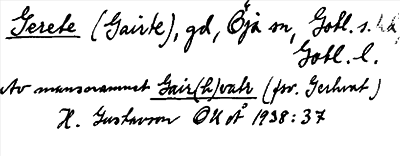 Gerete (Gairte), gd, Öja sn, Gotl. s. hd,
Gotl. l.
Av mansnamnet Gair(h)vatr (fsv. Gerhvat)
H. Gustavson OKoÅ 1938:37